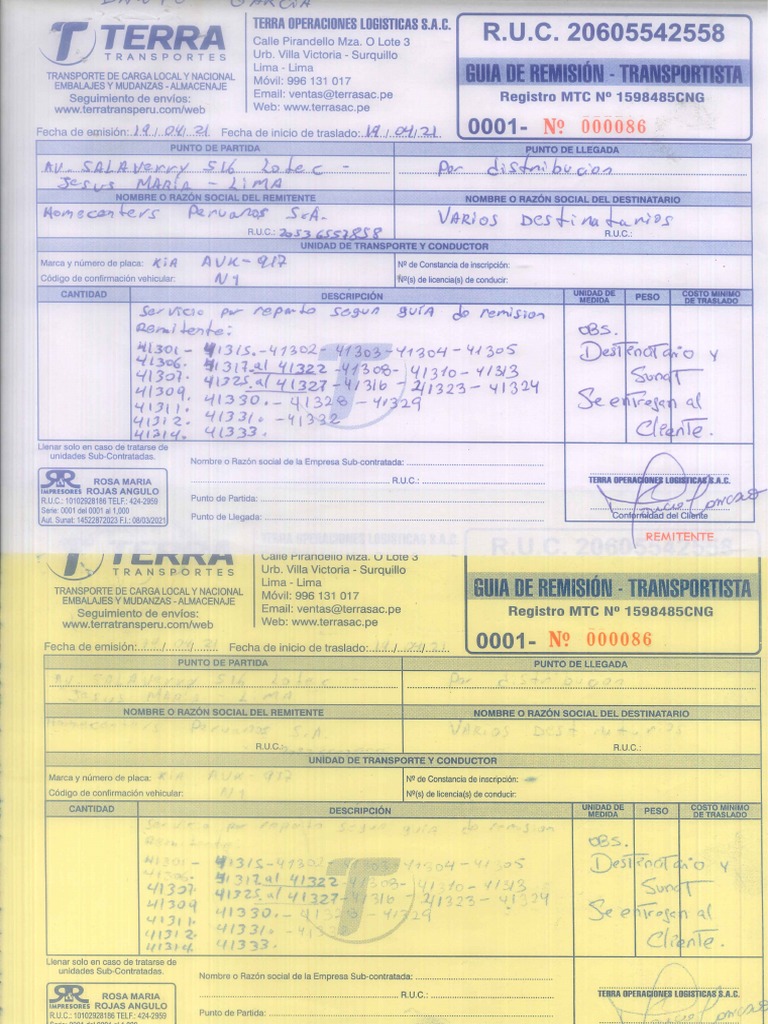 GARCIA
TERRA
TRANSPORTES
TRANSPORTE DE CARGA LOCAL Y NACIONAL
EMBALAJES Y MUDANZAS - ALMACENAJE
Seguimiento de envíos:
www.terratransperu.com/web
TERRA OPERACIONES LOGISTICAS S.A.C.
Calle Pirandello Mza. O Lote 3
Urb. Villa Victoria - Surquillo
Lima - Lima
Móvil: 996 131 017
Email: ventas@terrasac.pe
Web: www.terrasac.pe
R.U.C. 20605542558
GUIA DE REMISIÓN - TRANSPORTISTA
Registro MTC Nº 1598485CNG
0001- Nº 000086
Fecha de emisión: 19/04/21 Fecha de inicio de traslado: 19/04/21
PUNTO DE PARTIDA PUNTO DE LLEGADA
AV. SALAVERRY 516 Lote C - Por distribucion
Jesus MARIA - LIMA
NOMBRE O RAZÓN SOCIAL DEL REMITENTE NOMBRE O RAZÓN SOCIAL DEL DESTINATARIO
Homecenters Peruanos S.A. VARIOS Destinatarios
R.U.C.: 20536557858 R.U.C.:
UNIDAD DE TRANSPORTE Y CONDUCTOR
Marca y número de placa: KIA AVK-917 Nº de Constancia de inscripción:
Código de confirmación vehicular: N1 Nº(s) de licencia(s) de conducir:
CANTIDAD DESCRIPCIÓN UNIDAD DE MEDIDA PESO COSTO MINIMO DE TRASLADO
Servicio por reparto segun guia de remision
Remitente: OBS.
41301 - 41315.-41302-41303-41304-41305 Destinotario y
41306. 41317 al 41322-41308-41310-41313 Sunat
41307. 41325 al 41327-41316-41323-41324
41309 41330.-41328-41329 Se entregan al
41311. 41331.-41332 Cliente.
41312. 41333.
41314.
Llenar solo en caso de tratarse de
unidades Sub-Contratadas.
Nombre o Razón social de la Empresa Sub-contratada:
R.U.C.:
Punto de Partida:
Punto de Llegada:
RR IMPRESORES ROSA MARIA ROJAS ANGULO
R.U.C.: 10102928186 TELF.: 424-2959
Serie: 0001 del 0001 al 1,000
Aut. Sunat: 14522872023 F.I.: 08/03/2021
TERRA OPERACIONES LOGISTICAS S.A.C.
Conformidad del Cliente
REMITENTE
TERRA
TRANSPORTES
TRANSPORTE DE CARGA LOCAL Y NACIONAL
EMBALAJES Y MUDANZAS - ALMACENAJE
Seguimiento de envíos:
www.terratransperu.com/web
Calle Pirandello Mza. O Lote 3
Urb. Villa Victoria - Surquillo
Lima - Lima
Móvil: 996 131 017
Email: ventas@terrasac.pe
Web: www.terrasac.pe
R.U.C. 20605542558
GUIA DE REMISIÓN - TRANSPORTISTA
Registro MTC Nº 1598485CNG
0001- Nº 000086
Fecha de emisión: 19/04/21 Fecha de inicio de traslado: 19/04/21
PUNTO DE PARTIDA PUNTO DE LLEGADA
AV. SALAVERRY 516 Lote C - Por distribucion
Jesus MARIA - LIMA
NOMBRE O RAZÓN SOCIAL DEL REMITENTE NOMBRE O RAZÓN SOCIAL DEL DESTINATARIO
Homecenters Peruanos S.A. VARIOS Destinatarios
R.U.C.: R.U.C.:
UNIDAD DE TRANSPORTE Y CONDUCTOR
Marca y número de placa: KIA AVK-917 Nº de Constancia de inscripción:
Código de confirmación vehicular: N1 Nº(s) de licencia(s) de conducir:
CANTIDAD DESCRIPCIÓN UNIDAD DE MEDIDA PESO COSTO MINIMO DE TRASLADO
Servicio por reparto segun guia de remision
Remitente: OBS.
41301 - 41315-41302-41303-41304-41305 Destinotario y
41306. 41317 al 41322-41308-41310-41313 Sunat
41307 41325 al 41327-41316-41323-41324
41309 41330.-41328-41329 Se entregan al
41311. 41331.-41332 Cliente.
41312. 41333.
41314
Llenar solo en caso de tratarse de
unidades Sub-Contratadas.
Nombre o Razón social de la Empresa Sub-contratada:
R.U.C.:
Punto de Partida:
RR IMPRESORES ROSA MARIA ROJAS ANGULO
R.U.C.: 10102928186 TELF.: 424-2959
TERRA OPERACIONES LOGISTICAS S.A.C.